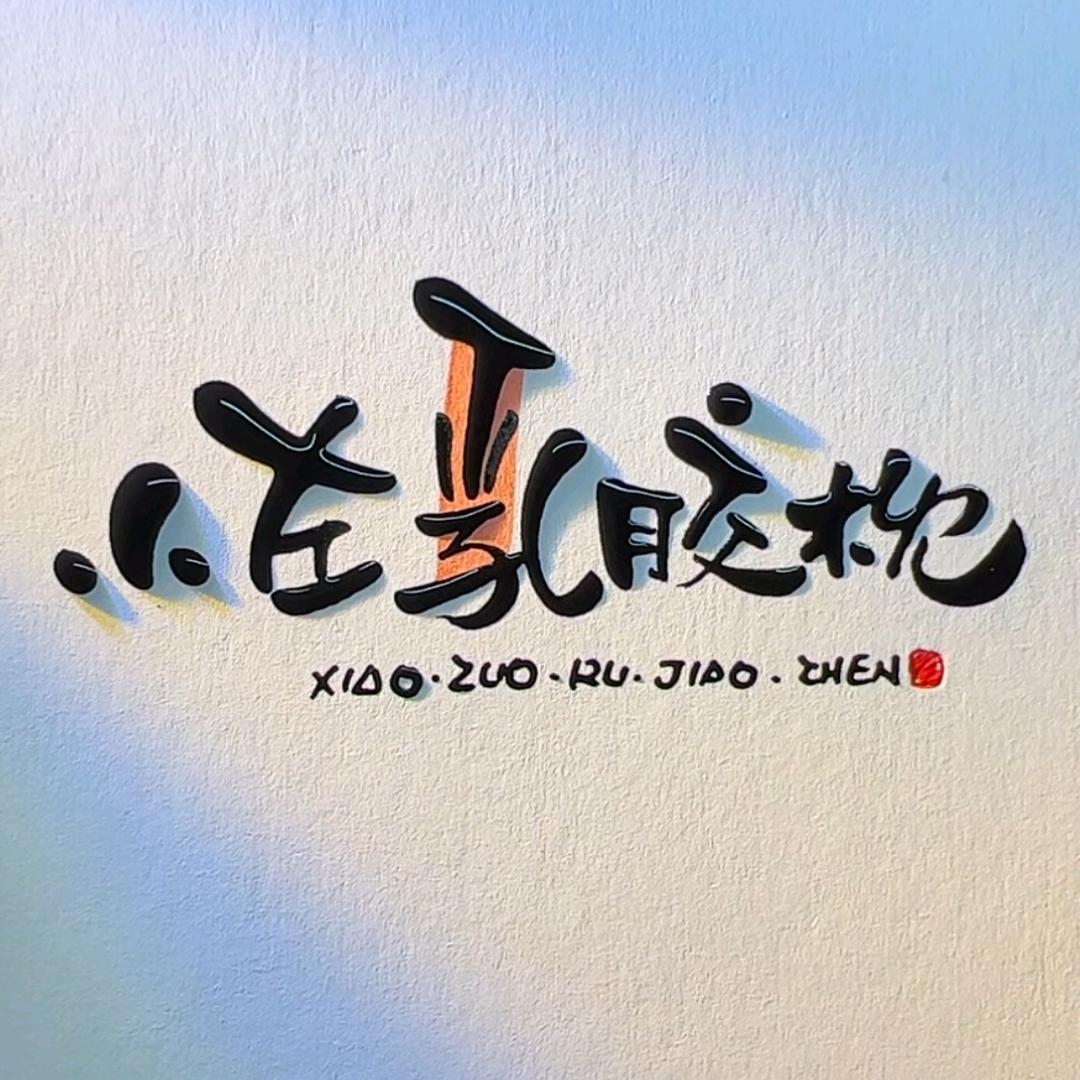 小左乳胶枕
XIAO·ZUO·RU·JIAO·ZHEN